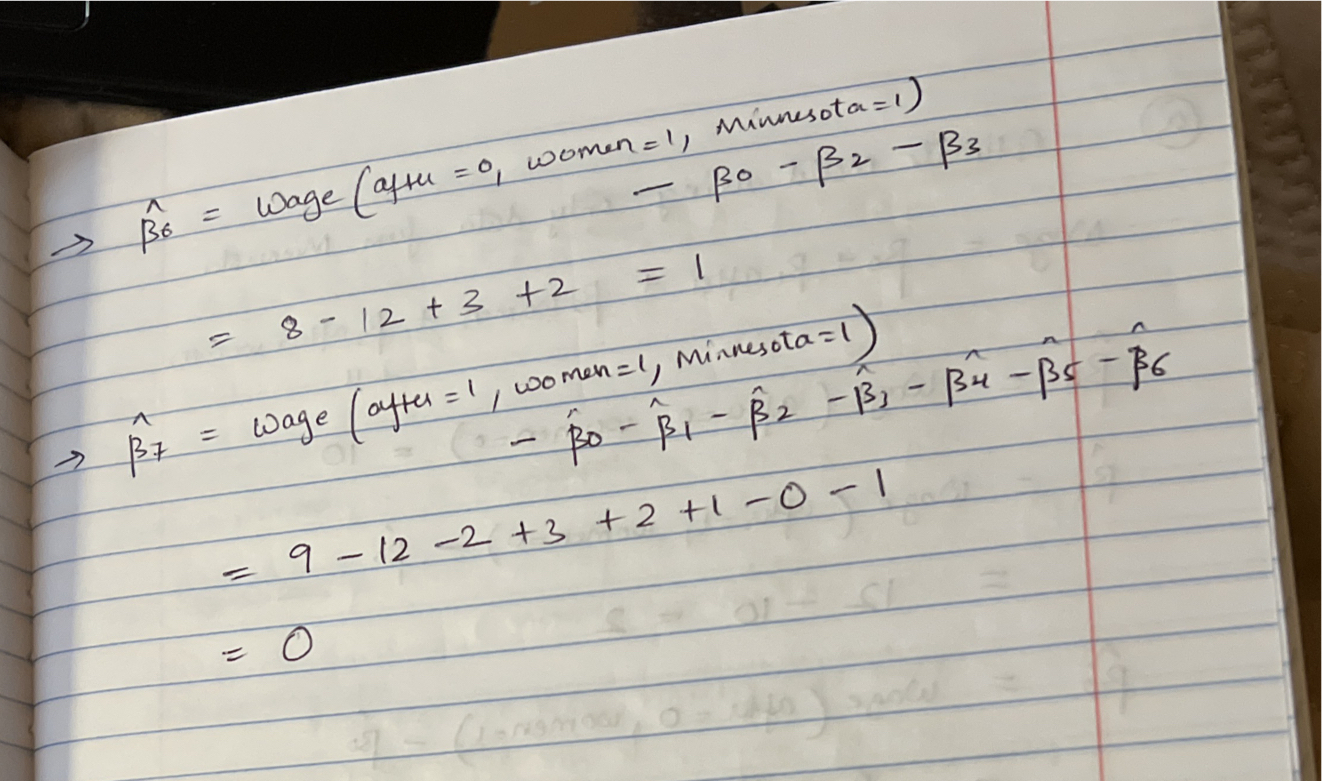 → β̂6 = Wage (after = 0, women = 1, Minnesota = 1)
− β0 − β2 − β3
= 8 − 12 + 3 + 2 = 1
→ β̂7 = Wage (after = 1, women = 1, Minnesota = 1)
− β̂0 − β̂1 − β̂2 − β̂3 − β̂4 − β̂5 − β̂6
= 9 − 12 − 2 + 3 + 2 + 1 − 0 − 1
= 0